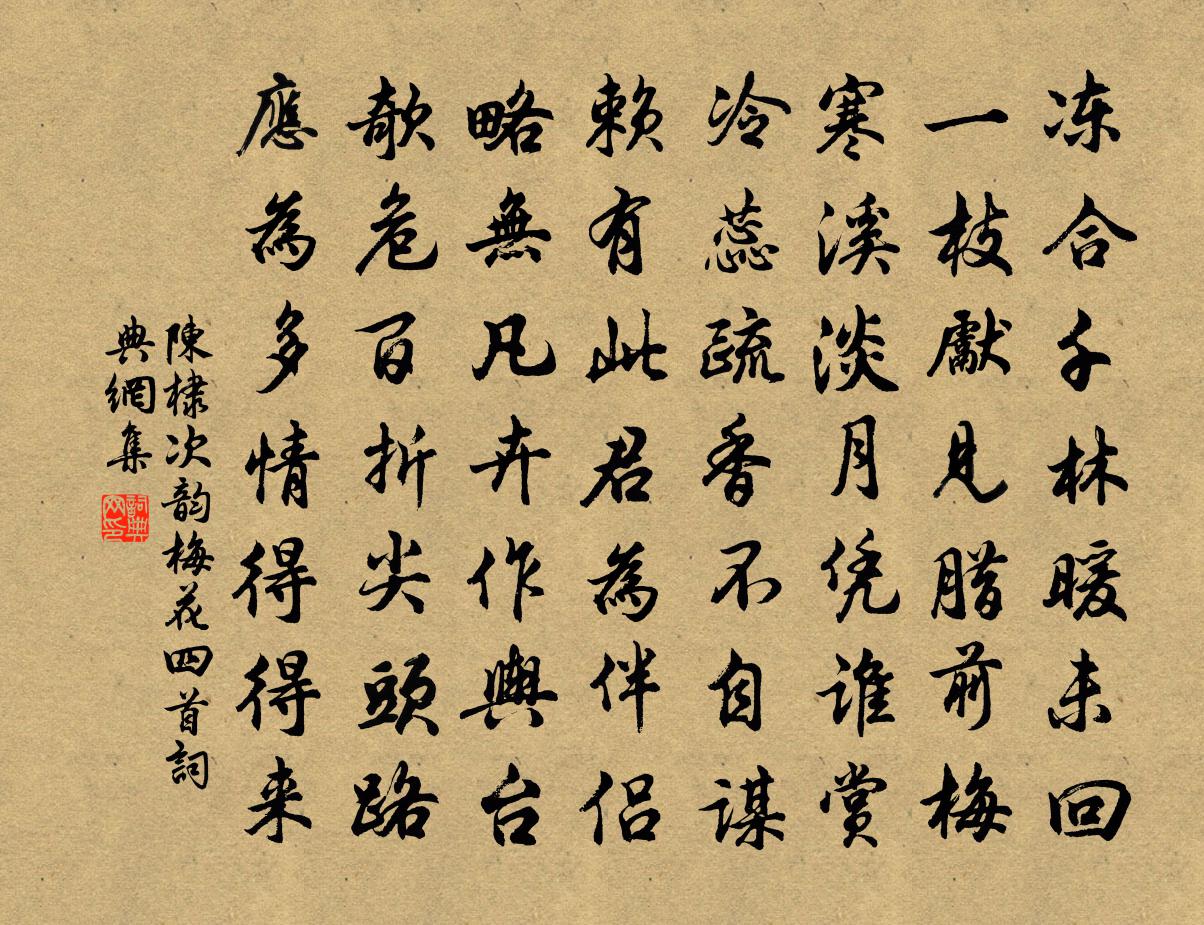 冻合千林暖未回
一枝獻見腊前梅
寒溪淡月凭谁賞
冷蕊疏香不自谋
赖有此君為伴侣
略無凡卉作輿台
欹危百折尖頭路
應為多情得得来
陳棣次韵梅花四首詞
典網集
詞典網印